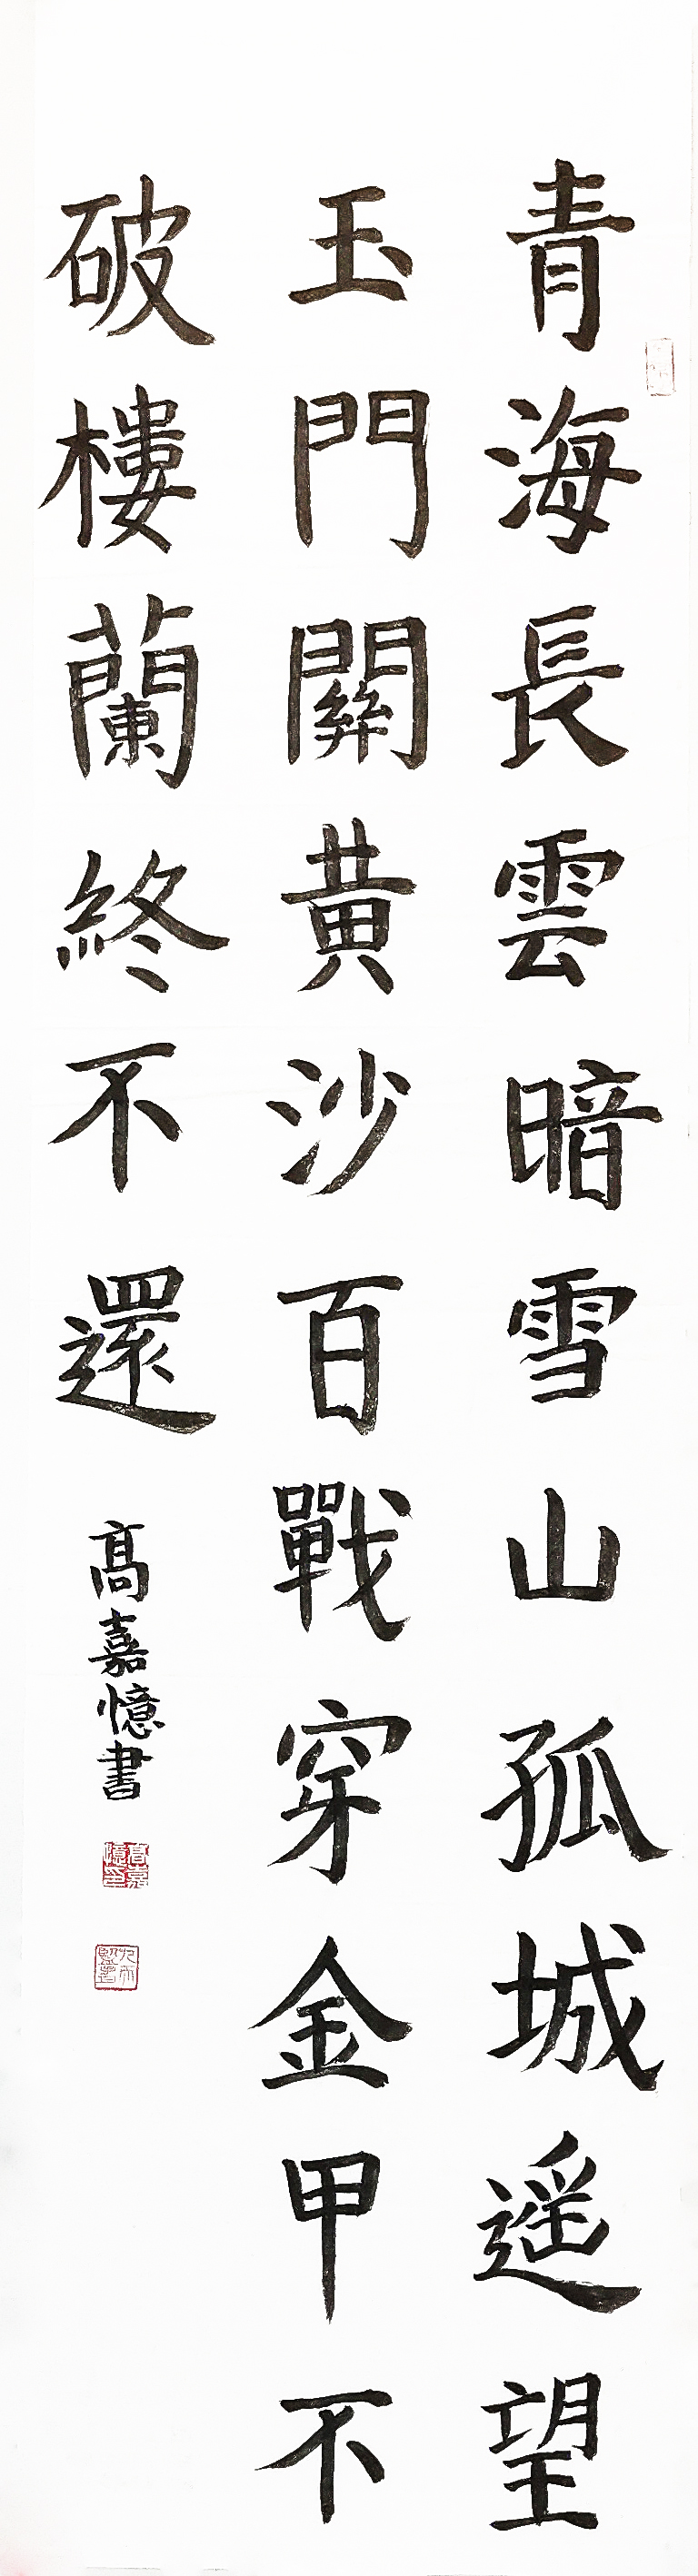 青海長雲暗雪山孤城遥望
玉門關黄沙百戰穿金甲不
破樓蘭終不還
髙嘉憶書
高嘉憶印